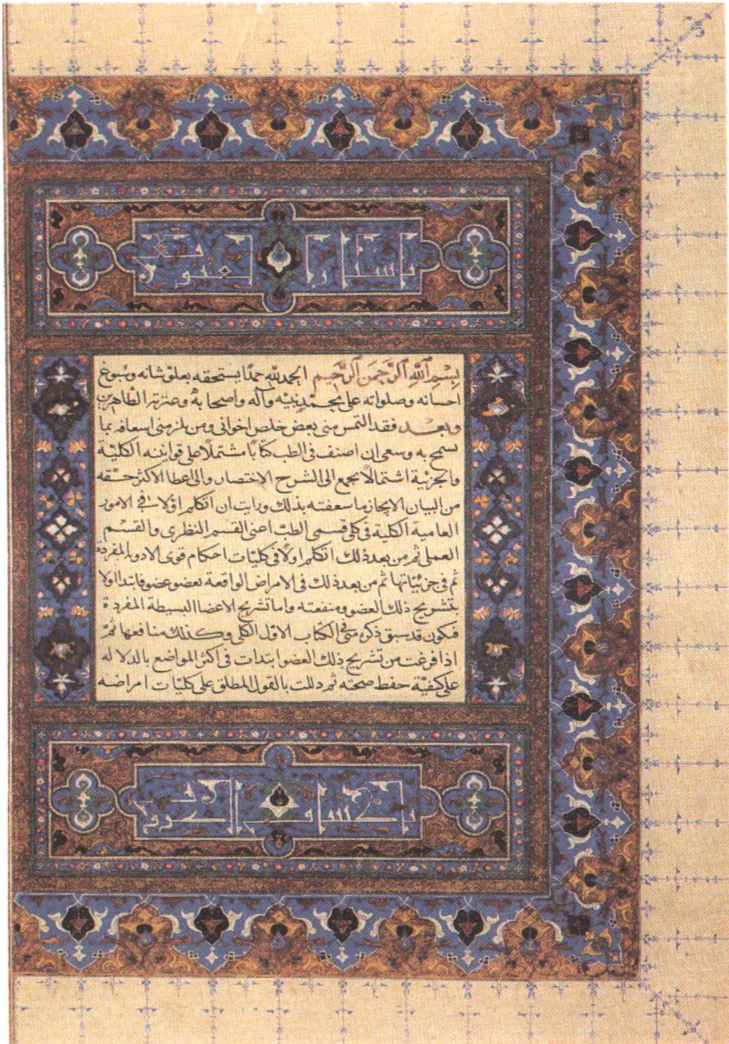 بسم الله الرحمن الرحيم الحمد لله حمدا يستحقه بعلو شانه وسبوغ
احسانه وصلواته على محمد نبيه وآله واصحابه وعترته الطاهرين
وبعد فقد التمس مني بعض خلص اخواني ومن يلزمني اسعافه بما
يسمح به وسعى ان اصنف في الطب كتابا مشتملا على قوانينه الكلية
والجزئية اشتمالا يجمع الى الشرح الاختصار والى اعطا الاكثر حقه
من البيان الايجاز فاسعفته بذلك ورايت ان اتكلم اولا في الامور
العامية الكلية في كلى قسمى الطب اعنى القسم النظرى والقسم
العملى ثم من بعد ذلك اتكلم اولا في كليات احكام قوى الادوية المفردة
ثم في جزئياتها ثم من بعد ذلك في الامراض الواقعة بعضو عضو فابتدا اولا
بتشريح ذلك العضو ومنفعته واما تشريح الاعضا البسيطة المفردة
فيكون قد سبق ذكره منى في الكتاب الاول الكلى وكذلك منافعها ثم
اذا فرغت من تشريح ذلك العضو ابتدات في اكثر المواضع بالدلاله
على كيفية حفظ صحته ثم دللت بالقول المطلق على كليات امراضه